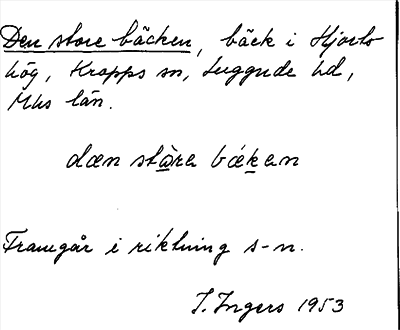 Den store bäcken, bäck i Hjorts
hög, Kropps sn, Luggude hd,
Mhs län.
dæn ståra bäkan
Framgår i riktning s-n.
I. Ingers 1953